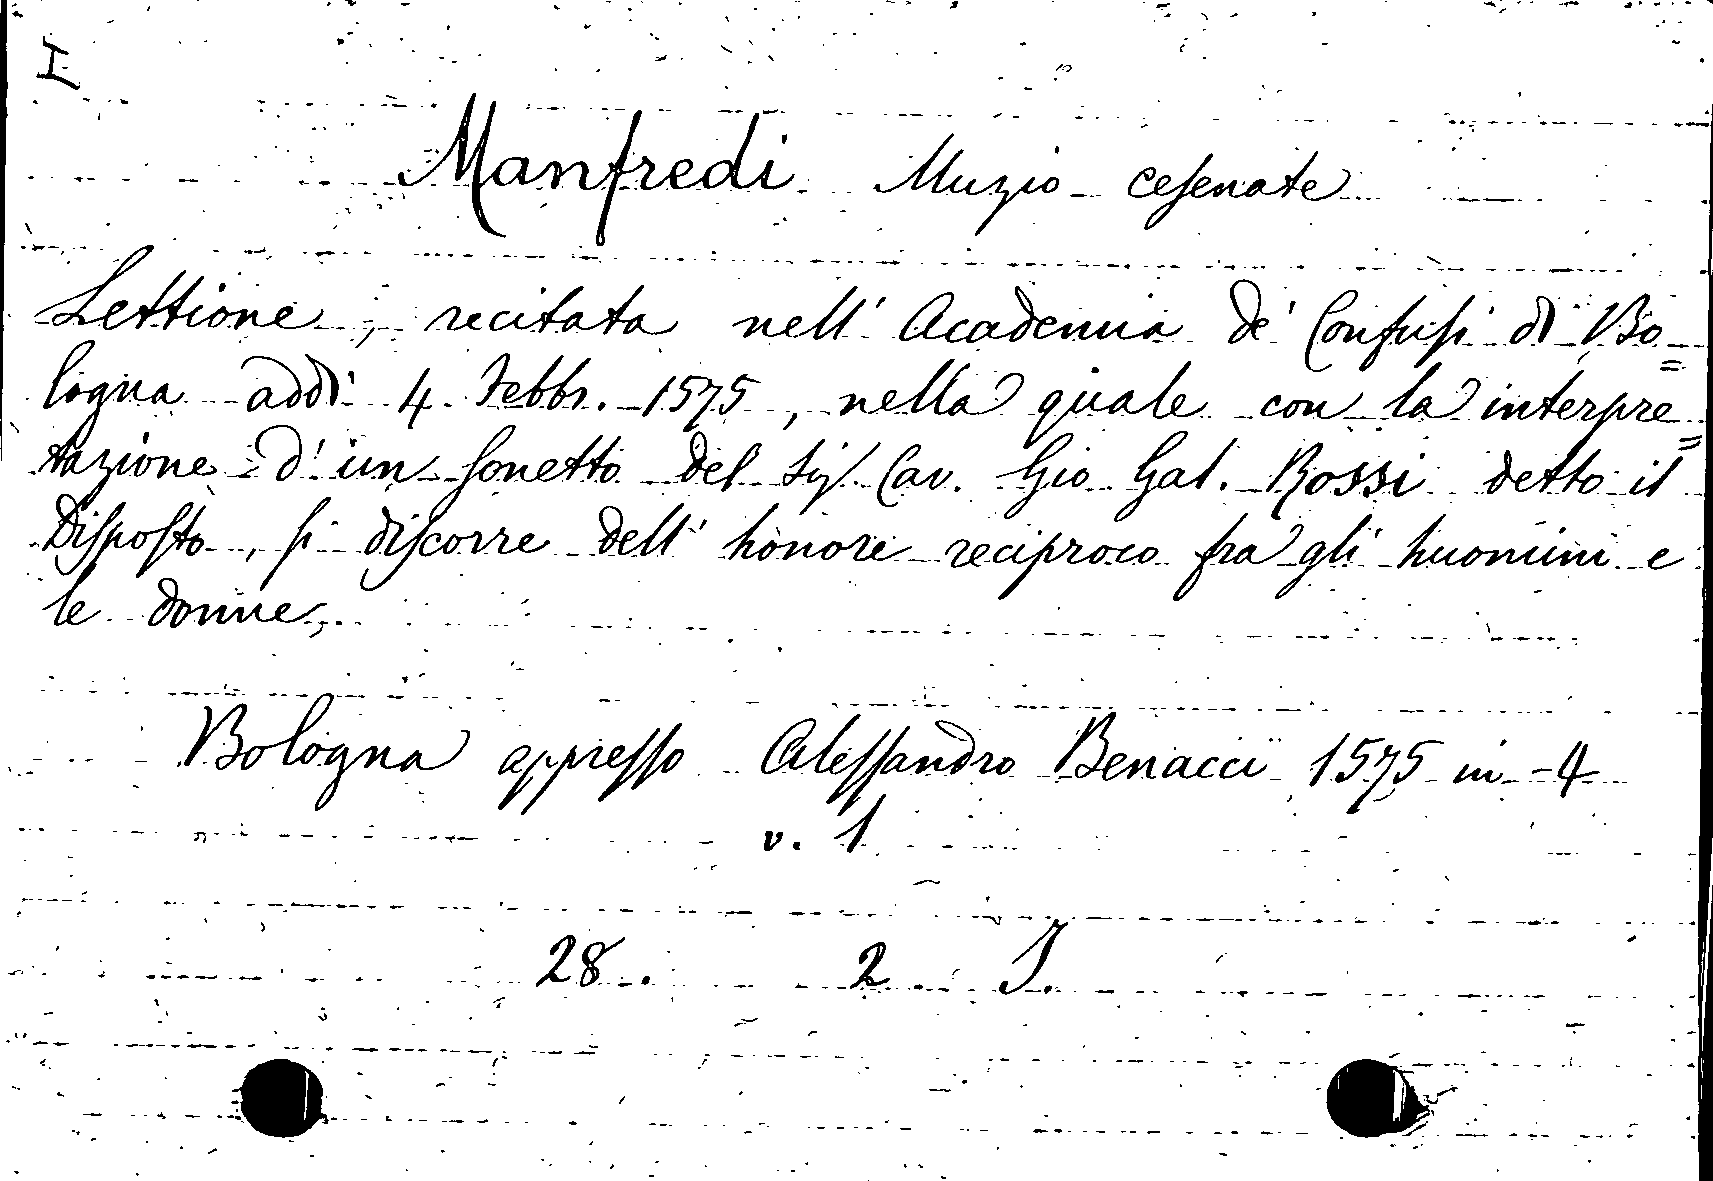 I
Manfredi Muzio cesenate
Lettione, recitata nell' Academia de' Confusi di Bo=
logna addì 4 Febbr. 1575, nella quale con la interpre=
tazione d'un sonetto del Sig. Cav. Gio Gal. Rossi detto il
Disposto, si discorre dell' honore reciproco fra gli huomini e
le donne,
Bologna appresso Alessandro Benacci 1575 in-4
v. 1
28. 2 I.